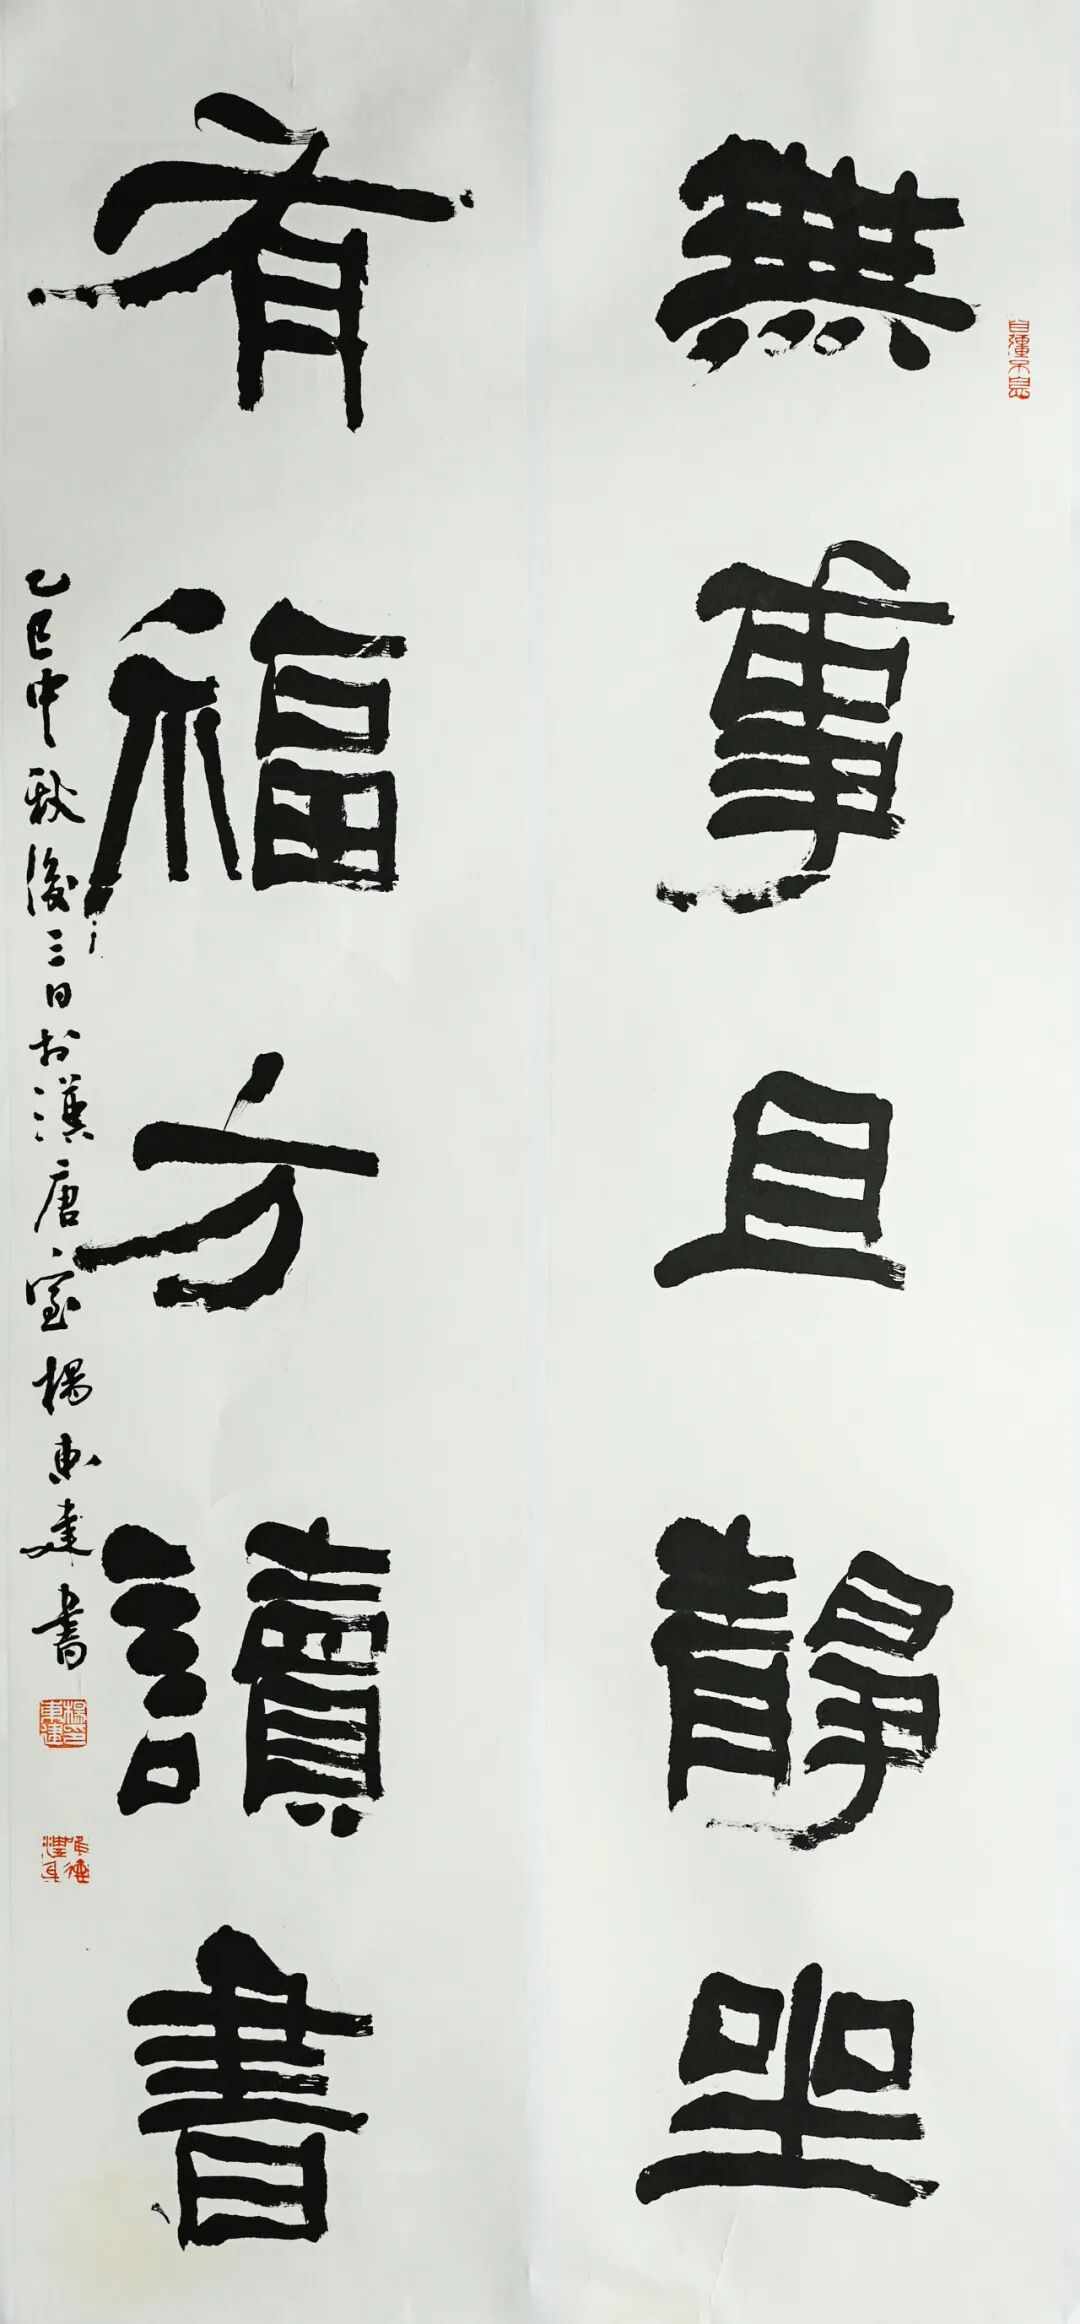 無事且靜坐
有福方讀書
乙巳中秋後三日於漢唐室楊東建書
自彊不息